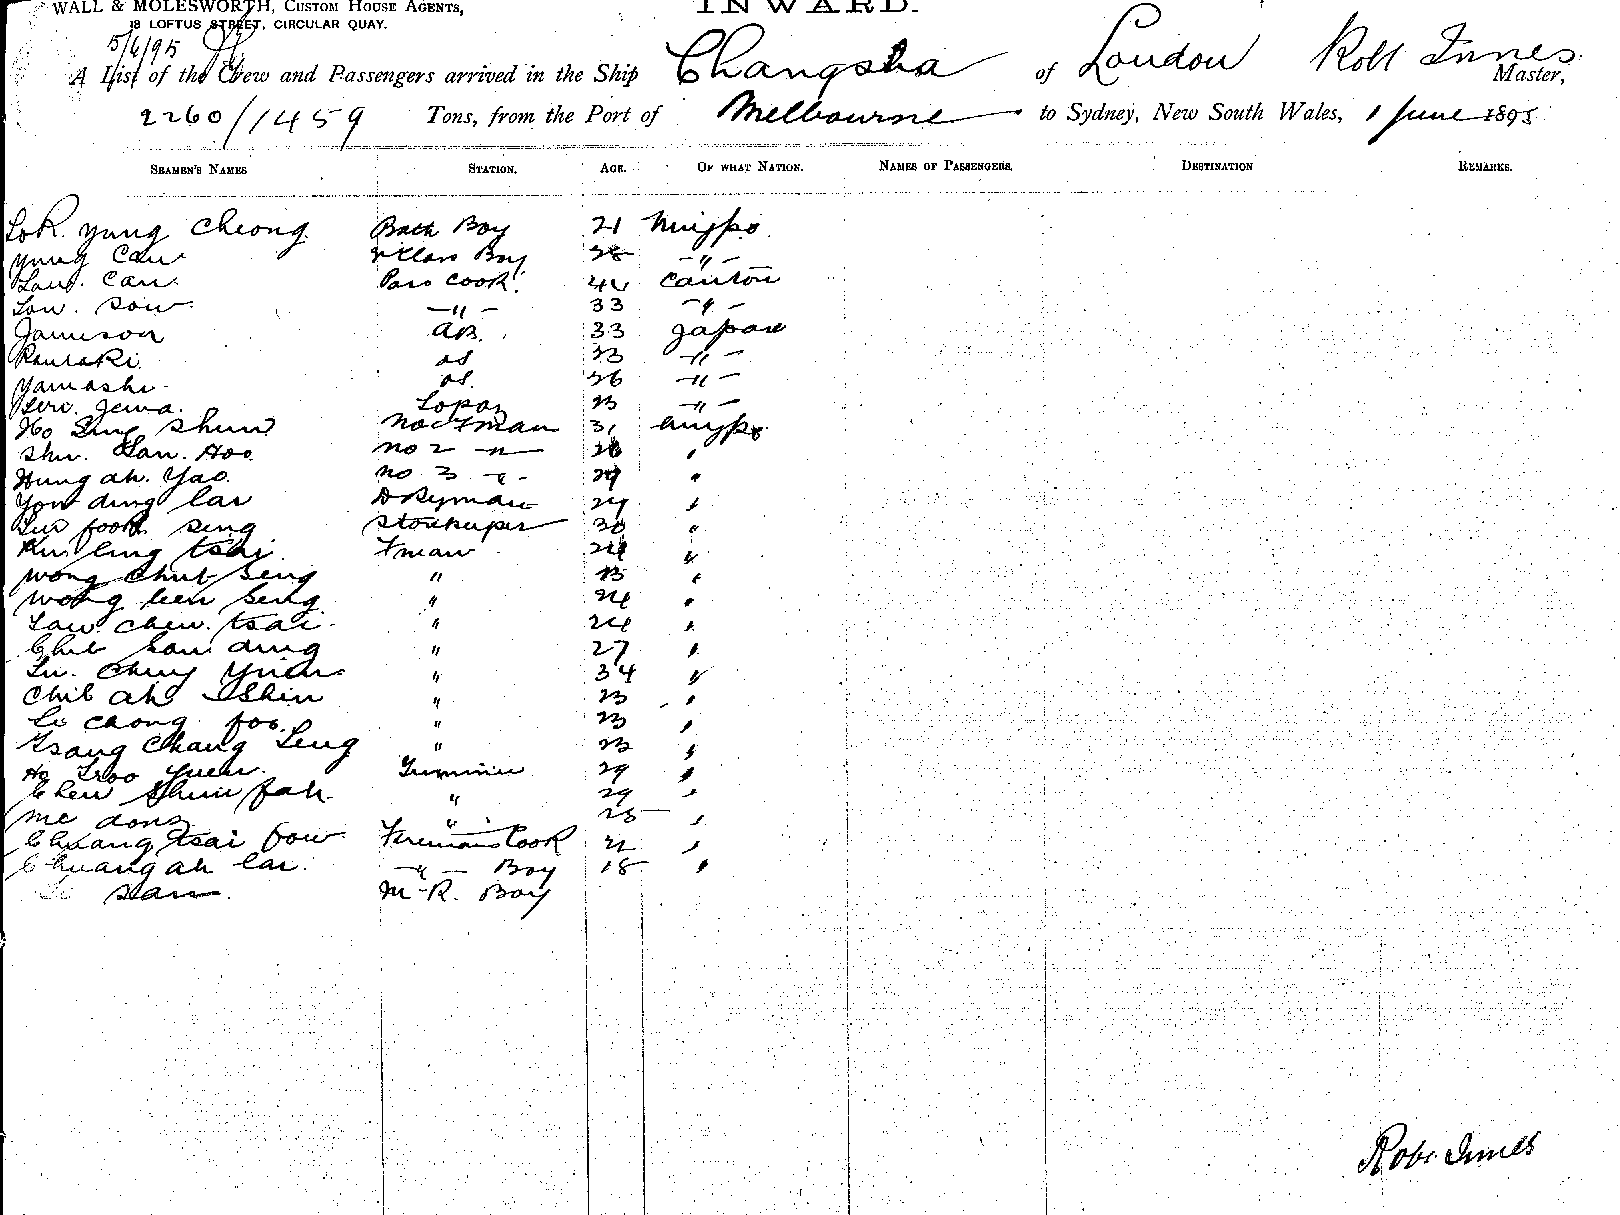 WALL & MOLESWORTH, CUSTOM HOUSE AGENTS,
18 LOFTUS STREET, CIRCULAR QUAY.
INWARD.
5/6/95
A List of the Crew and Passengers arrived in the Ship Changsha of London Robt Innes Master,
2260/1459 Tons, from the Port of Melbourne to Sydney, New South Wales, 1 June 1895
SEAMEN'S NAMES STATION. AGE. OF WHAT NATION. NAMES OF PASSENGERS. DESTINATION REMARKS.
Lok yung Cheong Bath Boy 21 Ningpo
yung Can Boy 28 -"-
Can Cook Canton
Low. Sow -"- 33 -"-
Jamieson AB. 33 Japan
os 23 -"-
Yamashi os. 26 -"-
23 -"-
Ho Sing Shun No 1 Fman 31 Ningpo
Shu. Hoo no 2 -"- "
Hung ah. Yao no 3 -"- 29 "
You ding lai Dkyman 29 "
fook sing Storekeeper 30 "
ling tsai Fman 24 "
Wong Chut Seng " 23 "
Wong Seng " 24 "
chew. tsai " 24 "
ding " 27 "
Ching Yuen " 34 "
Chit ah Shin " 23 "
chong foo " 23 "
Tsang Chang Seng " 23 "
Ho Tsoo Yuen Trimmer 29 "
Chew Shun fah " 29 "
" 25 "
Chuang tsai fow Firemans Cook "
Chuang ah lai -"- Boy 18 "
San M-R. Boy
Robt Innes